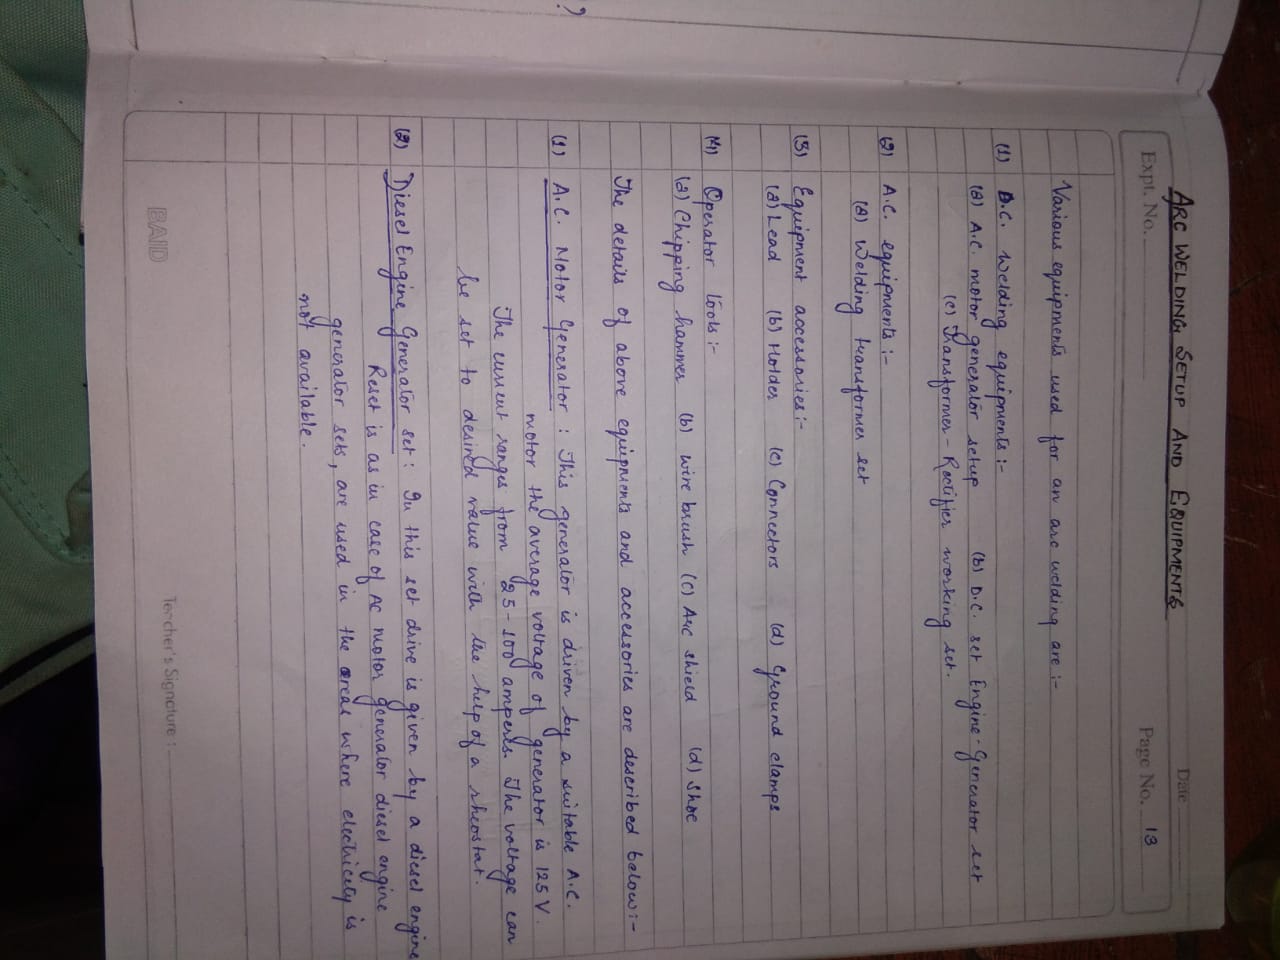 ARC WELDING, SETUP AND EQUIPMENTS
Date
Expt. No. Page No. 13
Various equipments used for an arc welding are :-
(1) D.C. welding equipments :-
(a) A.C. motor generator setup (b) D.C. set Engine-Generator set
(c) Transformer-Rectifier working set.
(2) A.C. equipments :-
(a) Welding transformer set
(3) Equipment accessories :-
(a) Lead (b) Holder (c) Connectors (d) Ground clamps
(4) Operator tools :-
(a) Chipping hammer (b) wire brush (c) Arc shield (d) Shoe
The details of above equipments and accessories are described below :-
(1) A.C. Motor Generator : This generator is driven by a suitable A.C.
motor the average voltage of generator is 125 V.
The current ranges from 25-100 amperes. The voltage can
be set to desired value with the help of a rheostat.
(2) Diesel Engine Generator set : In this set drive is given by a diesel engine
Reset is as in case of AC motor generator diesel engine
generator sets, are used in the areas where electricity is
not available.
Teacher's Signature :
BAID
?